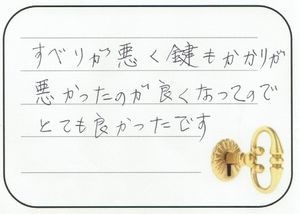 すべりが悪く鍵もかかりが
悪かったのが良くなってので
とても良かったです